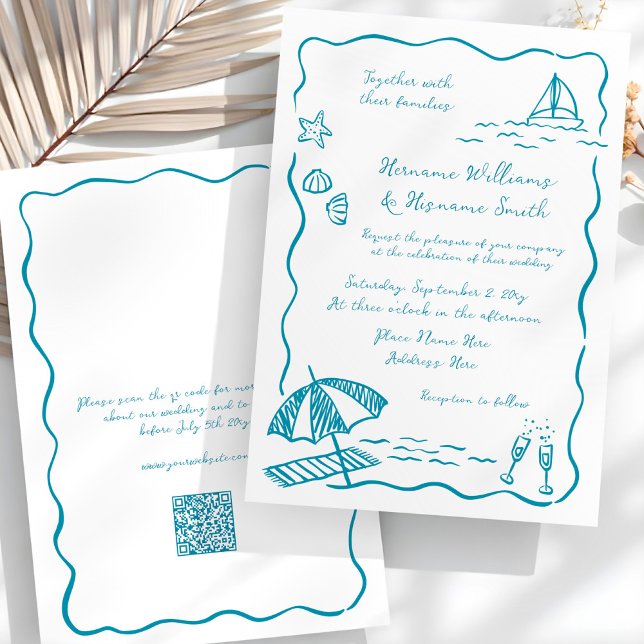 Together with
their families
Hername Williams
& Hisname Smith
Request the pleasure of your company
at the celebration of their wedding
Saturday, September 2, 20xy
At three o'clock in the afternoon
Place Name Here
Address Here
Reception to follow
Please scan the qr code for mor
about our wedding and to
before July 5th 20xy
www.yourwebsite.com